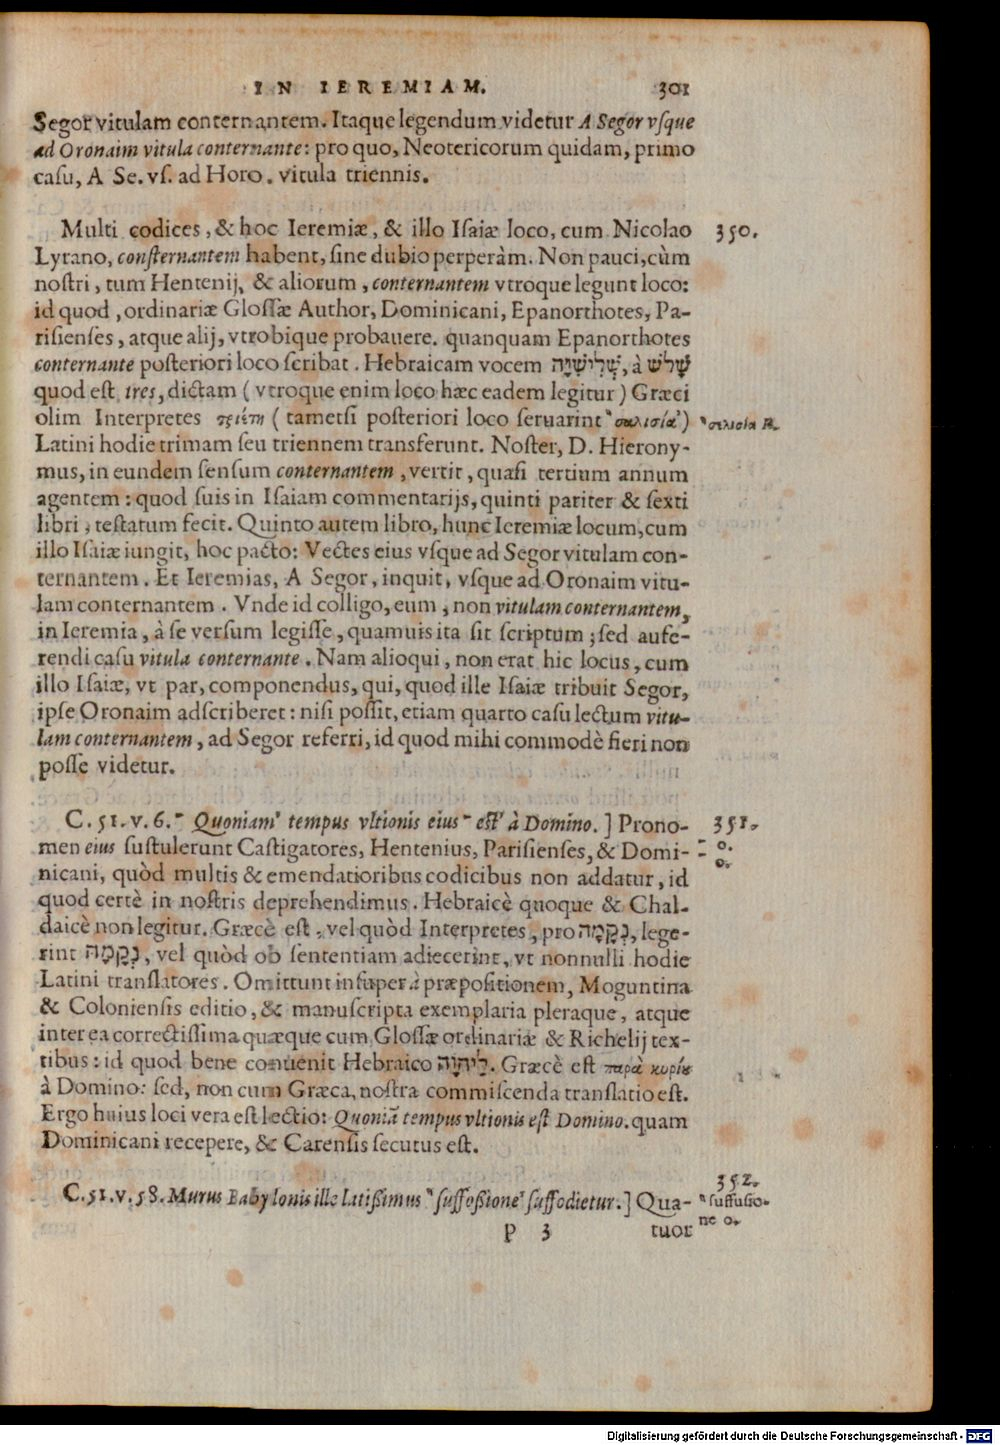 IN IEREMIAM. 301
Segor vitulam conternantem. Itaque legendum videtur A Segor vſque
ad Oronaim vitula conternante: pro quo, Neotericorum quidam, primo
caſu, A Se. vſ. ad Horo. vitula triennis.
Multi codices, & hoc Ieremiæ, & illo Iſaiæ loco, cum Nicolao 350.
Lyrano, conſternantem habent, ſine dubio perperàm. Non pauci, cùm
noſtri, tum Hentenij, & aliorum, conternantem vtroque legunt loco:
id quod, ordinariæ Gloſſæ Author, Dominicani, Epanorthotes, Pa-
riſienſes, atque alij, vtrobique probauere. quanquam Epanorthotes
conternante poſteriori loco ſcribat. Hebraicam vocem שְׁלִישִׁיָּה, à שָׁלֹשׁ
quod eſt tres, dictam (vtroque enim loco hæc eadem legitur) Græci
olim Interpretes τριέτη (tametſi poſteriori loco ſeruarint " σαλισία') " σιλισία R.
Latini hodie trimam ſeu triennem transferunt. Noſter, D. Hierony-
mus, in eundem ſenſum conternantem, vertit, quaſi tertium annum
agentem: quod ſuis in Iſaiam commentarijs, quinti pariter & ſexti
libri, teſtatum fecit. Quinto autem libro, hunc Ieremiæ locum, cum
illo Iſaiæ iungit, hoc pacto: Vectes eius vſque ad Segor vitulam con-
ternantem. Et Ieremias, A Segor, inquit, vſque ad Oronaim vitu-
lam conternantem. Vnde id colligo, eum, non vitulam conternantem,
in Ieremia, à ſe verſum legiſſe, quamuis ita ſit ſcriptum; ſed aufe-
rendi caſu vitula conternante. Nam alioqui, non erat hic locus, cum
illo Iſaiæ, vt par, componendus, qui, quod ille Iſaiæ tribuit Segor,
ipſe Oronaim adſcriberet: niſi poſſit, etiam quarto caſu lectum vitu-
lam conternantem, ad Segor referri, id quod mihi commodè fieri non
poſſe videtur.
C. 51. v. 6. Quoniam' tempus vltionis eius eſt' à Domino.] Prono- 351.
men eius ſuſtulerunt Caſtigatores, Hentenius, Pariſienſes, & Domi- o.
nicani, quòd multis & emendatioribus codicibus non addatur, id o.
quod certè in noſtris deprehendimus. Hebraicè quoque & Chal-
daicè non legitur. Græcè eſt, vel quòd Interpretes, pro נְקָמָה, lege-
rint נִקְמָהּ, vel quòd ob ſententiam adiecerint, vt nonnulli hodie
Latini translatores. Omittunt inſuper à præpoſitionem, Moguntina
& Colonienſis editio, & manuſcripta exemplaria pleraque, atque
inter ea correctiſſima quæque cum Gloſſæ ordinariæ & Richelij tex-
tibus: id quod bene conuenit Hebraico לַיהוָֹה. Græcè eſt παρὰ κυρίου
à Domino: ſed, non cum Græca, noſtra commiſcenda translatio eſt.
Ergo huius loci vera eſt lectio: Quoniā tempus vltionis eſt Domino. quam
Dominicani recepere, & Carenſis ſecutus eſt.
C. 51. v. 58. Murus Babylonis ille latiſſimus " ſuffoſſione' ſuffodietur.] Qua- 352. " ſuffuſio-
P 3 tuor ne o.
Digitalisierung gefördert durch die Deutsche Forschungsgemeinschaft - DFG